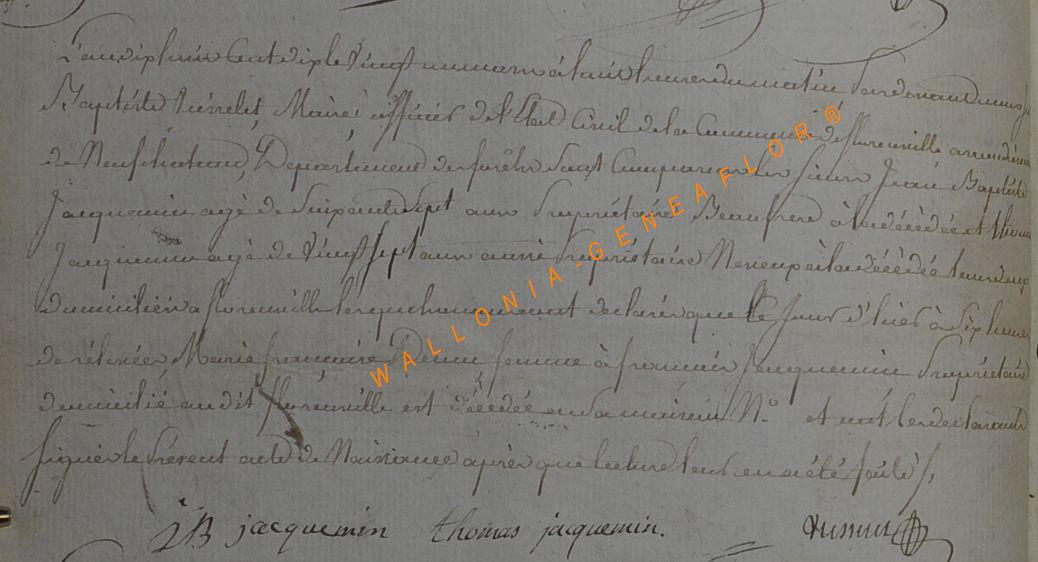 L'an dix huit Cent dix le vingt un mars à huit heures du matin Pardevant nous
Baptiste Maire officier de l'Etat Civil de la Commune de florenville
de Neufchateau, Département des forêts Sont Comparus les Sieurs Jean Baptiste
Jacquemin agé de Soixante Sept ans Propriétaire Beaufrere à la décédée et thomas
Jacquemin agé de Vingt Sept ans aussi Propriétaire Neveu à la décédée tous deux
domiciliés a florenville lesquels nous ont déclarés que le Jour d'hier à Six heures
de rélevée, Marie françoise femme à françois Jacquemin Propriétaire
domicilié audit florenville est décédée en Sa maison N.° et ont les déclarants
Signés le Présent acte de Naissance après que lecture leur en a été faite
JB jacquemin thomas jacquemin.
WALLONIA-GENEAFLOR®